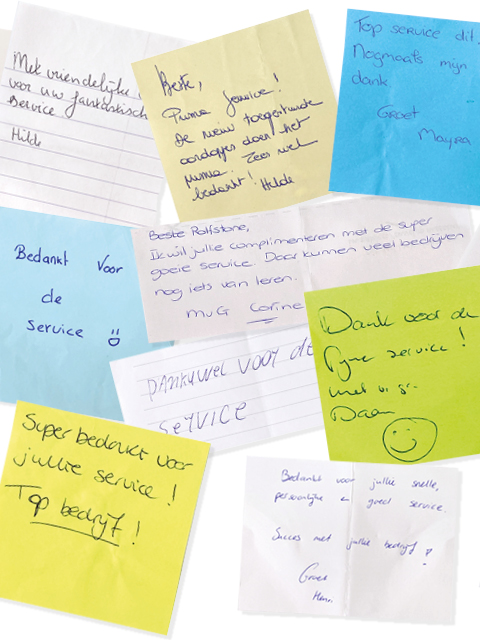 Met vriendelijke
voor uw fantastisch
service
Hilde
Beste,
Puma service!
De nieuw toegestuurde
oordopjes doen het
prima. Zeer veel
bedankt! Hilde
Top service dit.
Nogmaals mijn
dank
Groet
Mayra
Bedankt voor
de
service
Beste Ralfstone,
Ik wil jullie complimenteren met de super
goeie service. Daar kunnen veel bedrijven
nog iets van leren.
MvG Corine
Dankuwel voor de
service
Dank voor de
fijne service!
met v. gr.
Daan
Super bedankt voor
jullie service!
Top bedrijf!
Bedankt voor jullie snelle,
persoonlijke en goed service.
Succes met jullie bedrijf!
Groet
Henri